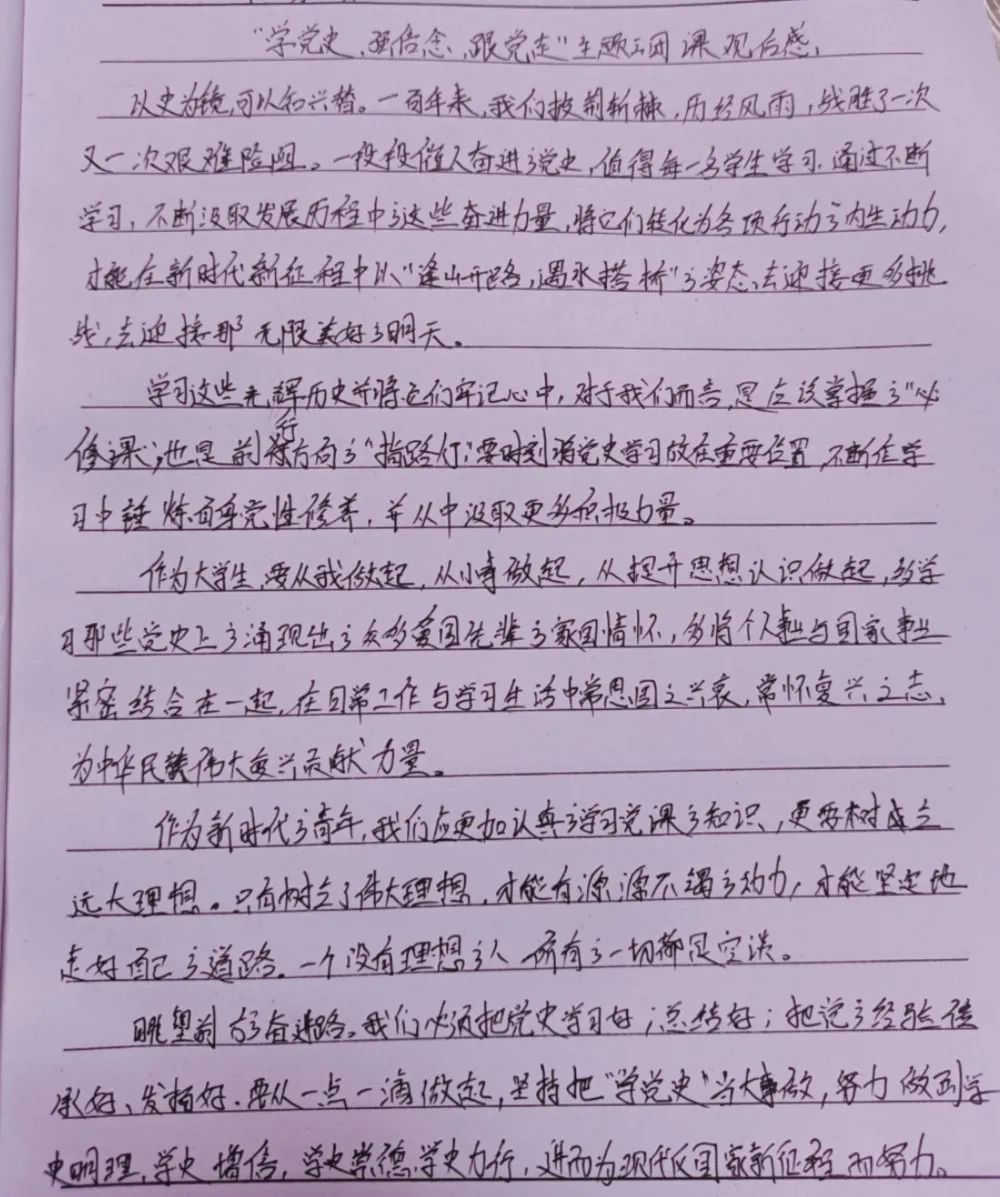 “学党史、强信念、跟党走”主题团课观后感、
以史为镜,可以知兴替。一百年来,我们披荆斩棘,历经风雨,战胜了一次
又一次艰难险阻。一段段催人奋进的党史,值得每一名学生学习.通过不断
学习,不断汲取发展历程中的这些奋进力量,将它们转化为各项行动的内生动力,
才能在新时代新征程中以“逢山开路,遇水搭桥”的姿态,去迎接更多挑
战,去迎接那无限美好的明天。
学习这些光辉历史并将它们牢记心中,对于我们而言,是应该掌握的“必
修课”,也是前行方向的“指路灯”,要时刻将党史学习放在重要位置,不断在学
习中锤炼自身党性修养,并从中汲取更多积极力量。
作为大学生,要从我做起,从小事做起,从提升思想认识做起,多学
习那些党史上的涌现出的众多爱国先辈的家国情怀,多将个人事业与国家事业
紧密结合在一起,在日常工作与学习生活中常思国之兴衰,常怀复兴之志,
为中华民族伟大复兴贡献力量。
作为新时代的青年,我们应更加认真的学习党课的知识,更要树立
远大理想。只有树立了伟大理想,才能有源源不竭的动力,才能坚定地
走好自己的道路.一个没有理想的人所有的一切都是空谈。
眺望前方的奋进路。我们必须把党史学习好;总结好;把党的经验传
承好、发扬好.要从一点一滴做起,坚持把“学党史”当大事做,努力做到学
史明理,学史增信,学史崇德,学史力行,进而为现代化国家新征程而努力。